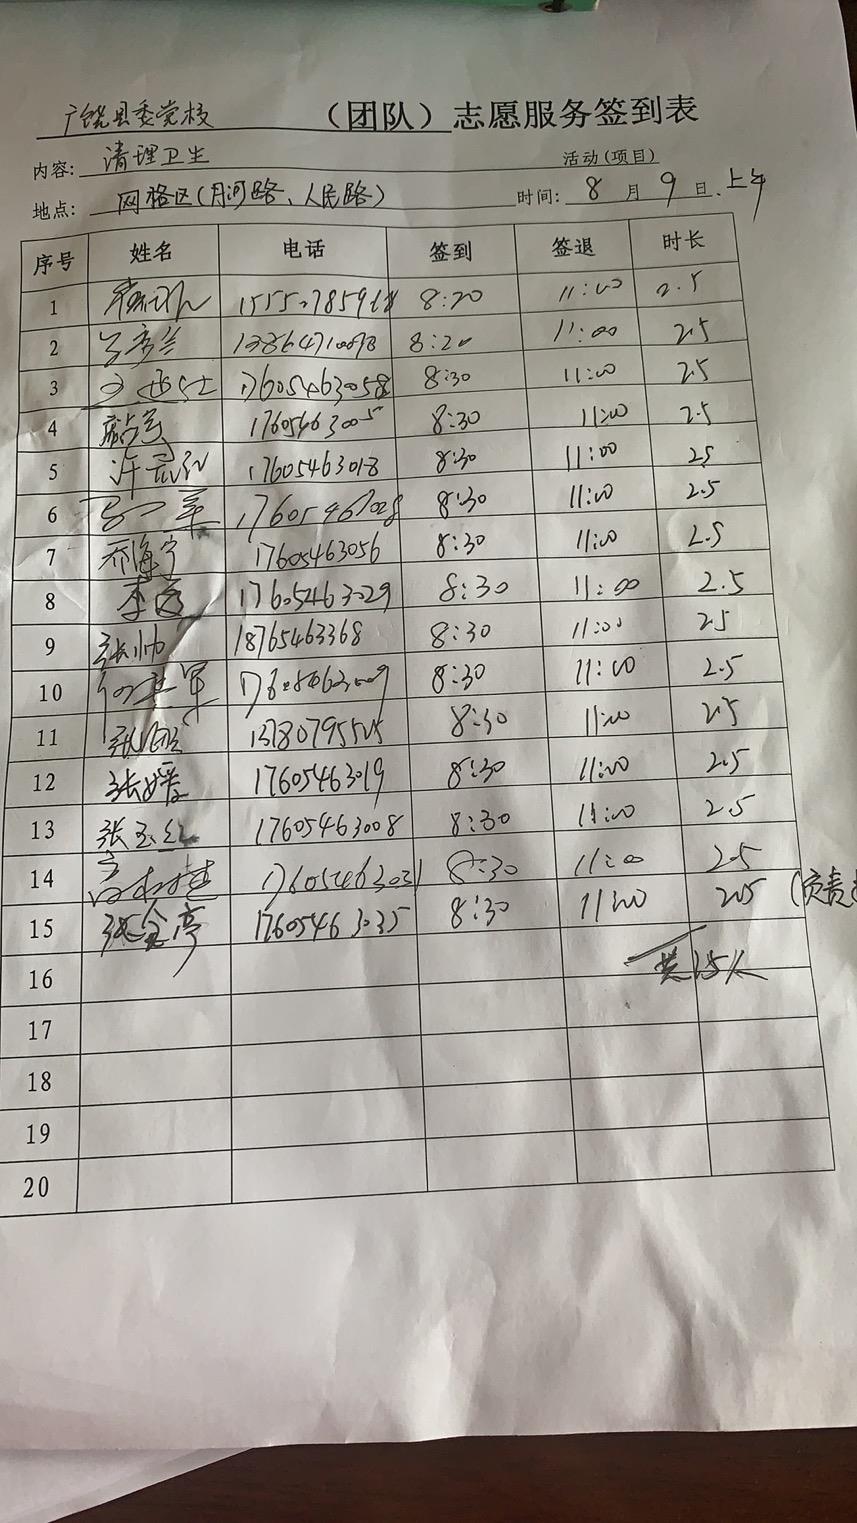 广饶县委党校 （团队）志愿服务签到表
内容: 清理卫生 活动(项目)
地点: 网格区(月河路、人民路) 时间: 8 月 9 日、上午
序号 姓名 电话 签到 签退 时长
1 8:20 11:00 2.5
2 8:20 11:00 2.5
3 17605463058 8:30 11:00 2.5
4 17605463005 8:30 11:00 2.5
5 17605463018 8:30 11:00 25
6 8:30 11:00 2.5
7 乔海宁 17605463056 8:30 11:00 2.5
8 17605463029 8:30 11:00 2.5
9 张帅 18765463368 8:30 11:00 2.5
10 8:30 11:00 2.5
11 8:30 11:00 2.5
12 17605463019 8:30 11:00 2.5
13 张玉红 17605463008 8:30 11:00 2.5
14 17605463031 8:30 11:00 2.5
15 张金亭 17605463035 8:30 11:00 2.5 (负责
16 共15人
17
18
19
20